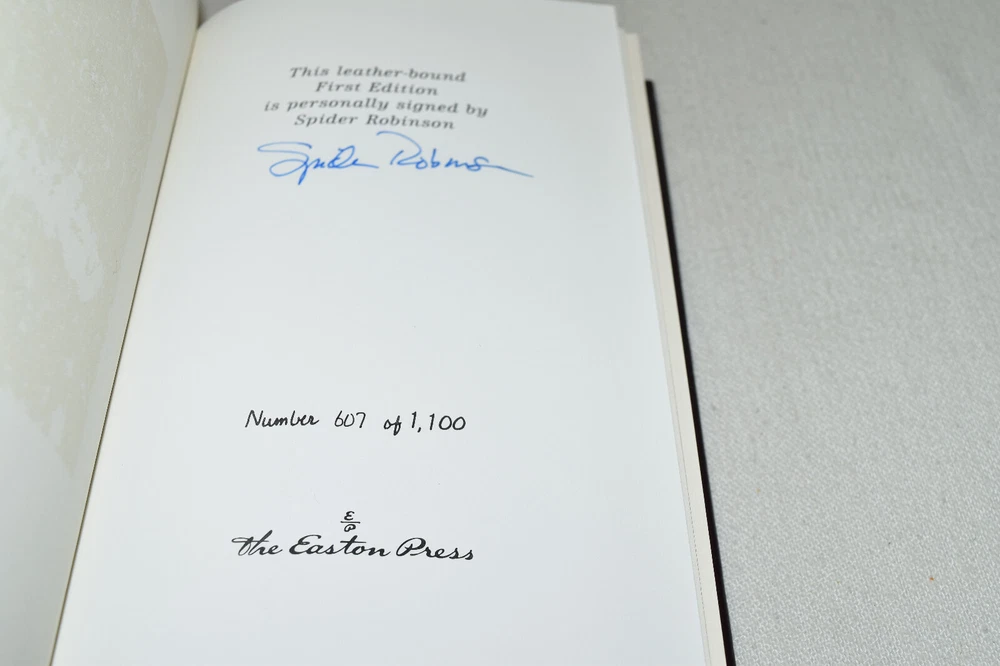 This leather-bound
First Edition
is personally signed by
Spider Robinson
Spider Robinson
Number 607 of 1,100
E
P
the Easton Press